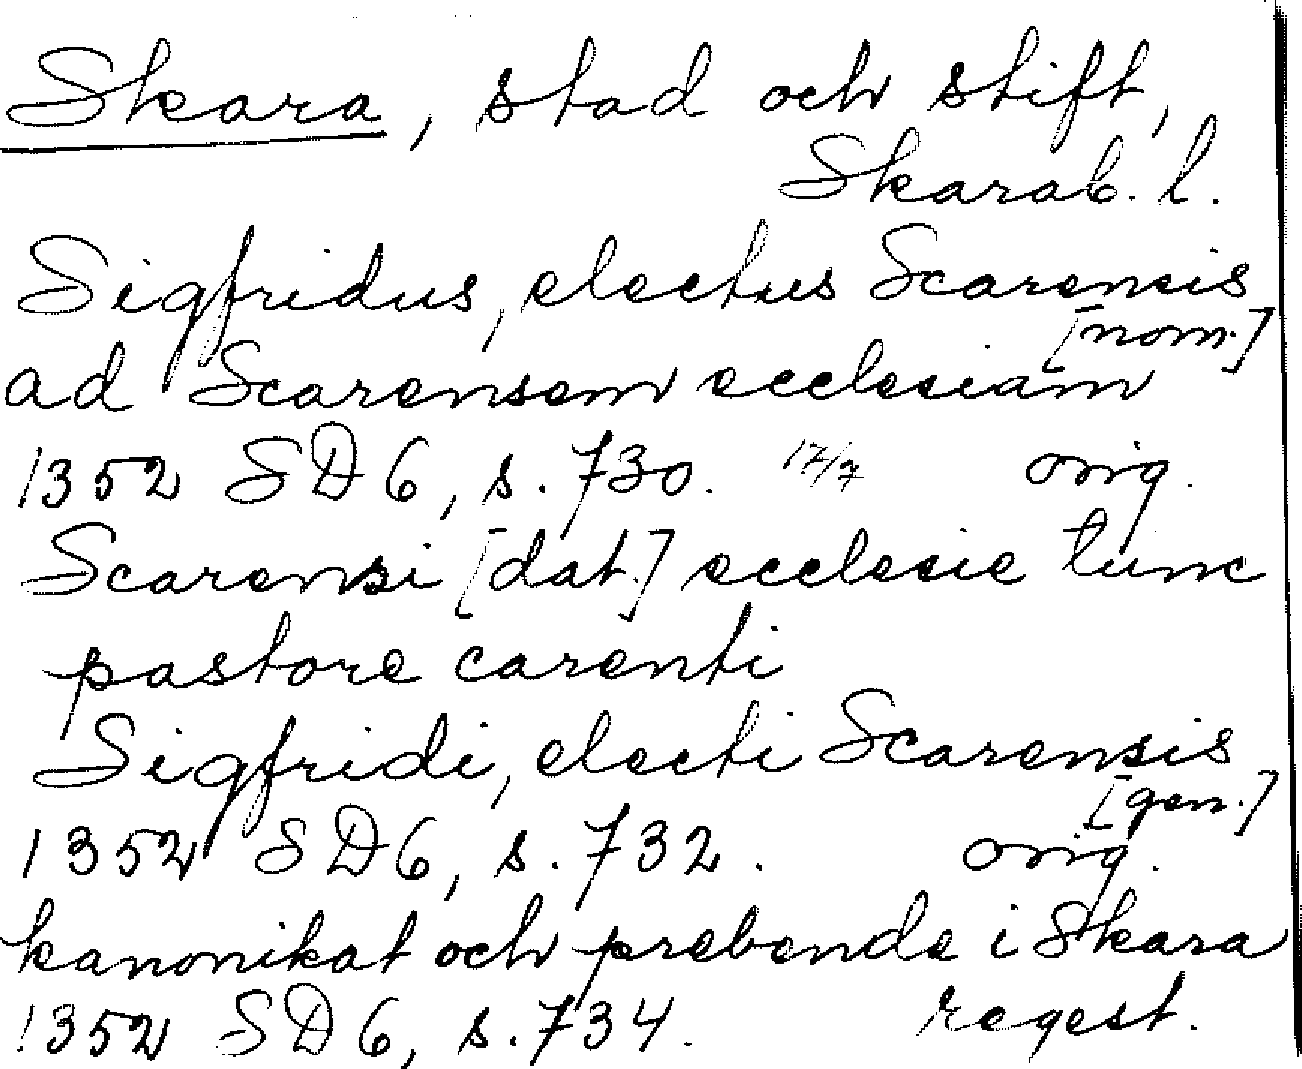 Skara, stad och stift,
Skarab. l.
Sigfridus, electus Scarensis
[nom.]
ad Scarensem ecclesiam
1352 SD6, s. 730. 17/7 orig.
Scarensi [dat.] ecclesie tunc
pastore carenti
Sigfridi, electi Scarensis
[gen.]
1352 SD6, s. 732. orig.
kanonikat och prebende i Skara
1352 SD6, s. 734. regest.